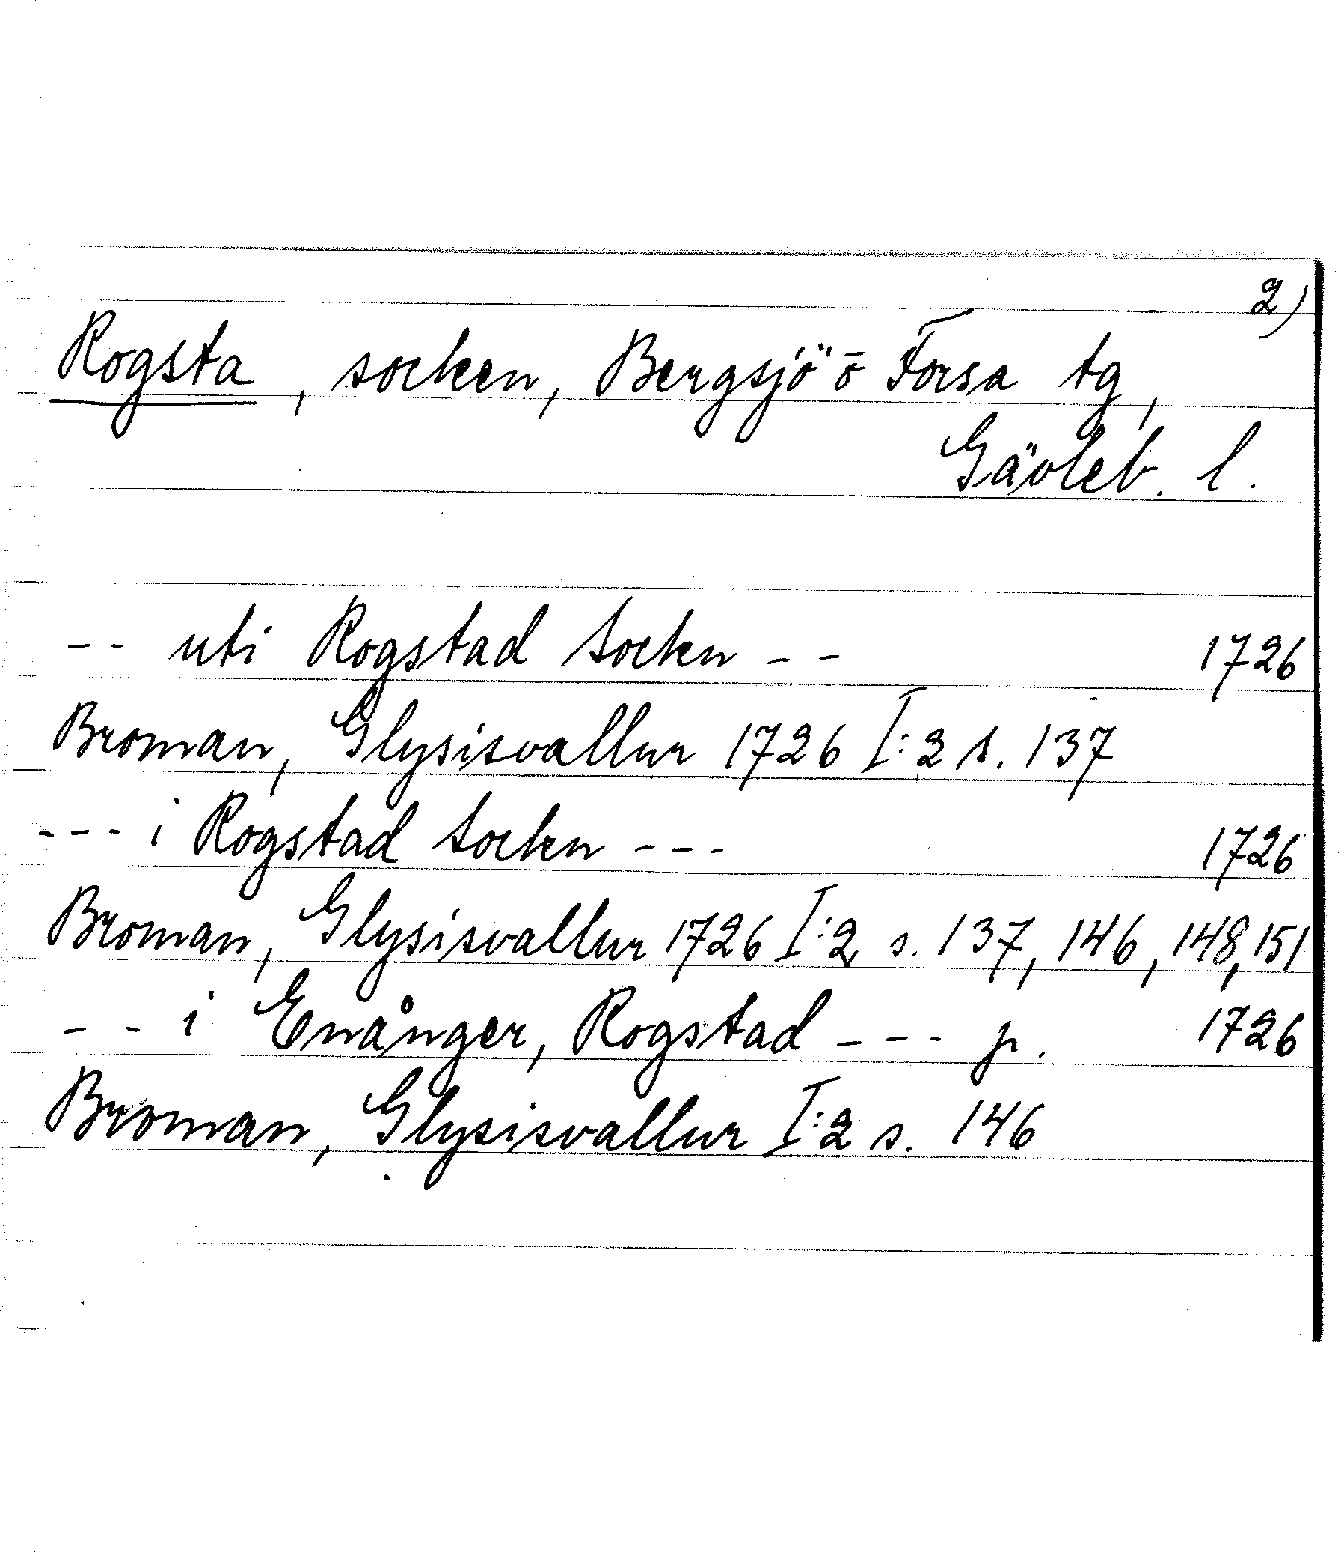 2)
Rogsta, socken, Bergsjö o Forsa tg,
Gävleb. l.
-- uti Rogstad Sockn -- 1726
Broman, Glysisvallur 1726 I:2 s. 137
--- i Rogstad Sockn --- 1726
Broman, Glysisvallur 1726 I:2 s. 137, 146, 148, 151
-- i Enånger, Rogstad --- p. 1726
Broman, Glysisvallur I:2 s. 146